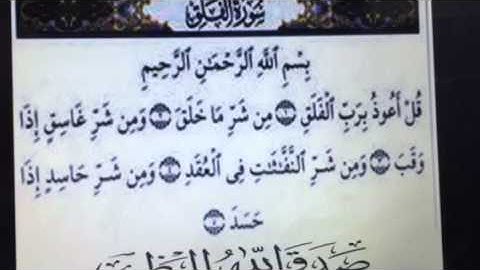 سورة الفلق
بِسْمِ ٱللَّهِ ٱلرَّحْمَـٰنِ ٱلرَّحِيمِ
قُلْ أَعُوذُ بِرَبِّ ٱلْفَلَقِ ۝١ مِن شَرِّ مَا خَلَقَ ۝٢ وَمِن شَرِّ غَاسِقٍ إِذَا
وَقَبَ ۝٣ وَمِن شَرِّ ٱلنَّفَّـٰثَـٰتِ فِى ٱلْعُقَدِ ۝٤ وَمِن شَرِّ حَاسِدٍ إِذَا
حَسَدَ ۝٥
صدق الله العظيم